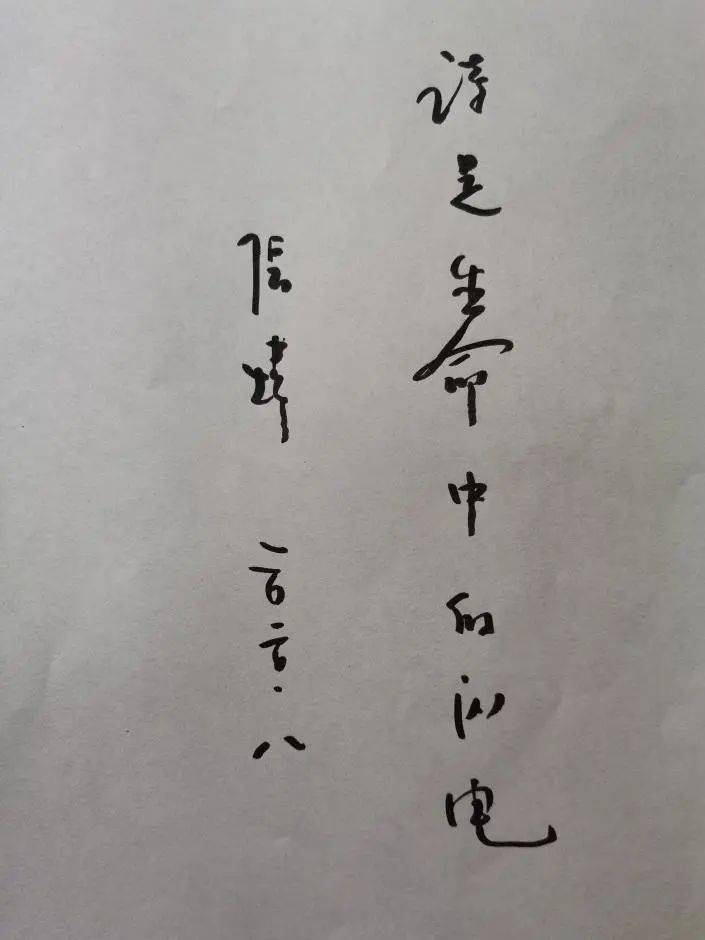 诗是生命中的闪电
张烨 二〇二〇.八